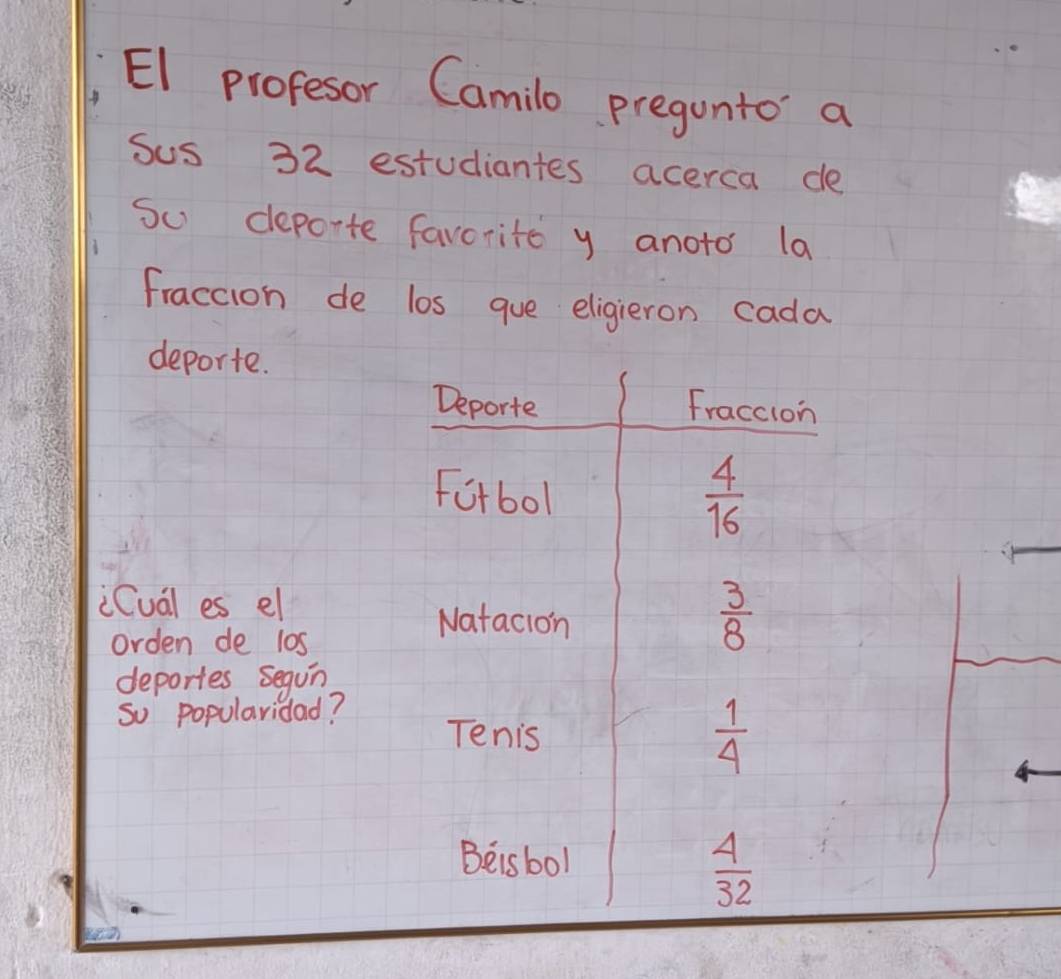 El profesor Camilo preguntó a
sus 32 estudiantes acerca de
su deporte favorito y anotó la
fraccion de los que eligieron cada
deporte.
Deporte Fracción
Fútbol 4/16
Natación 3/8
Tenis 1/4
Béisbol 4/32
¿Cuál es el
orden de los
deportes según
su popularidad?